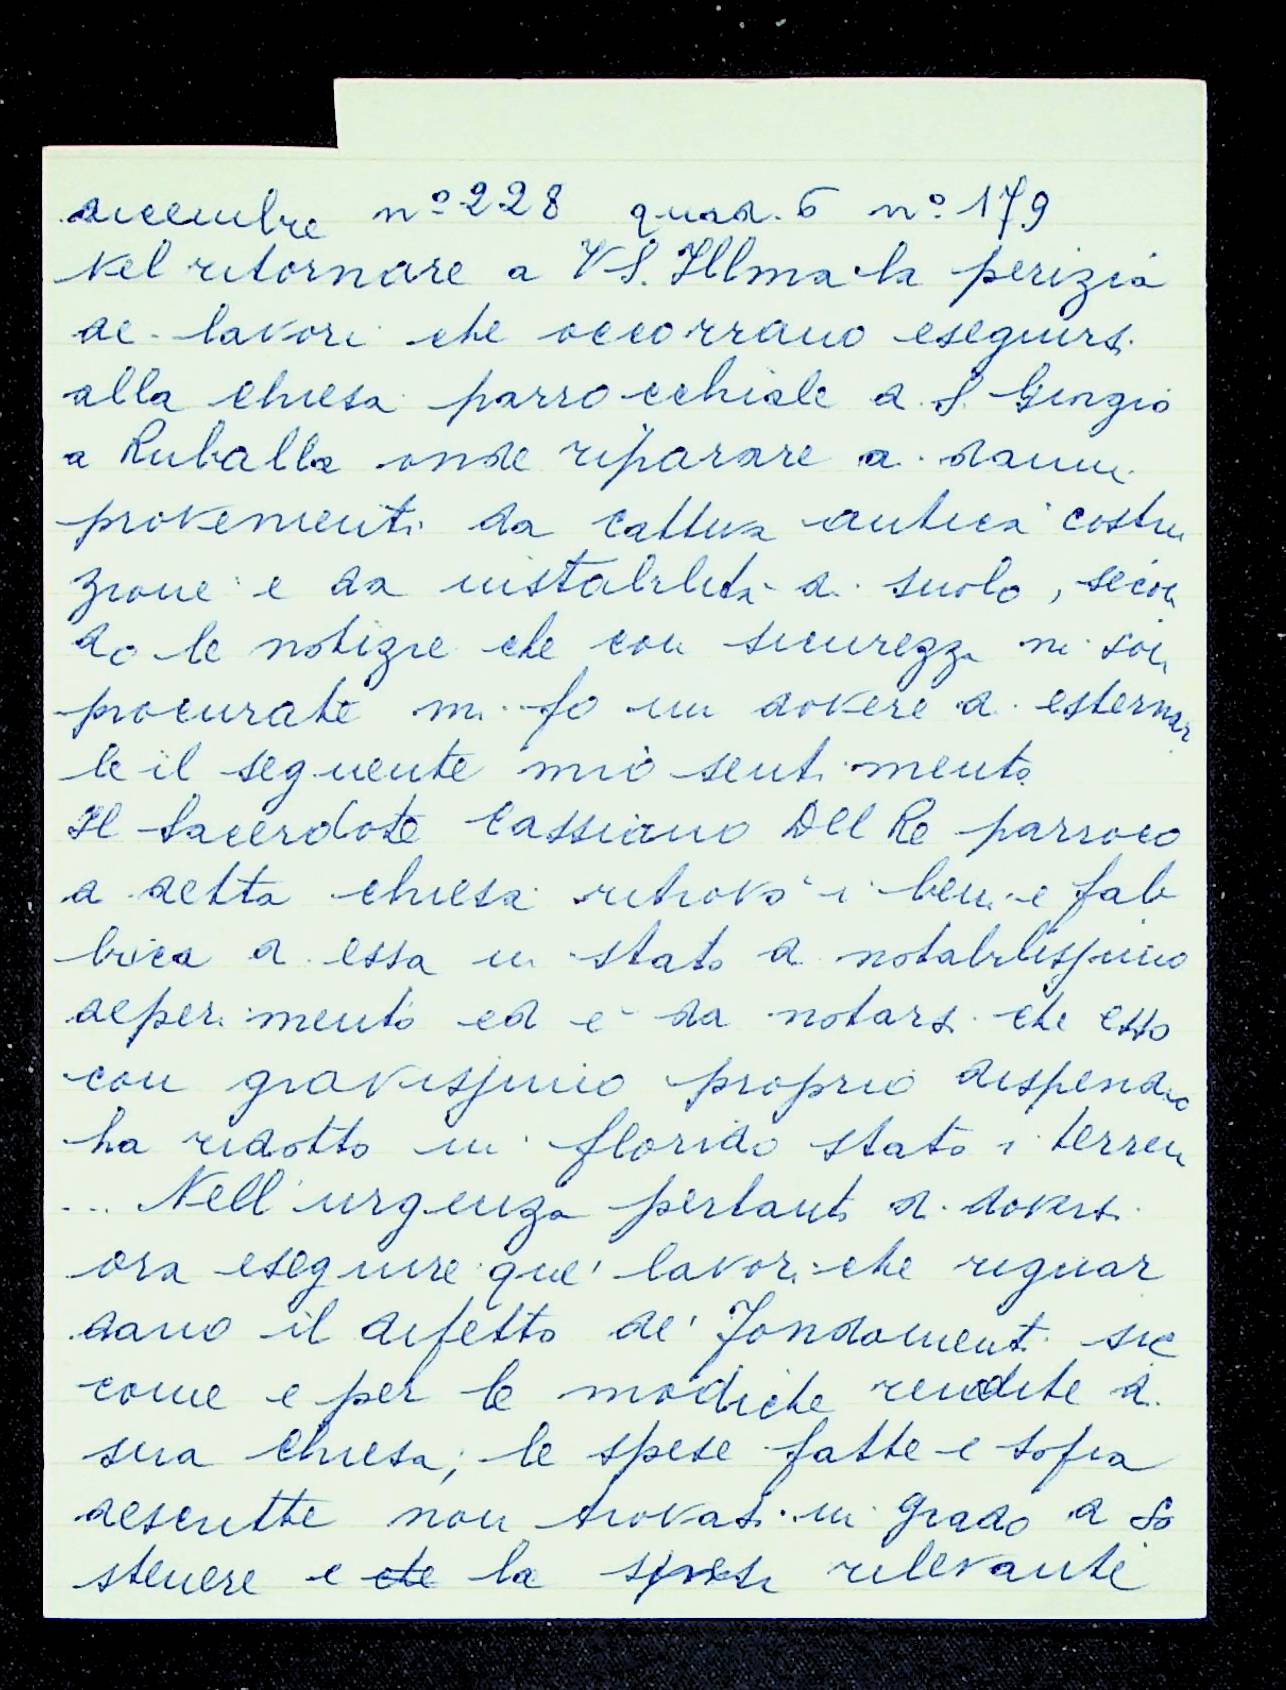 dicembre nº 228 quad. 6 nº 179
Nel ritornare a VS. Illma la perizia
de lavori che occorrano eseguirsi
alla chiesa parrocchiale di S. Giorgio
a Ruballa onde riparare ai danni
provenienti da cattiva antica costru
zione e da instabilità di suolo, secon
do le notizie che con sicurezza mi son
procurate mi fo un dovere di esternar
le il seguente mio sentimento
Il Sacerdote Cassiano Del Re parroco
di detta chiesa ritrovò i beni e fab
brica di essa in stato di notabilissimo
deperimento ed è da notarsi che esso
con gravissimo proprio dispendio
ha ridotto in florido stato i terreni
... Nell'urgenza pertanto di doversi
ora eseguire que' lavori che riguar
dano il difetto de' Fondamenti sic
come e per le modiche rendite di
sua Chiesa; le spese fatte e sopra
descritte non trovasi in grado di so
stenere e che la spesa rilevante